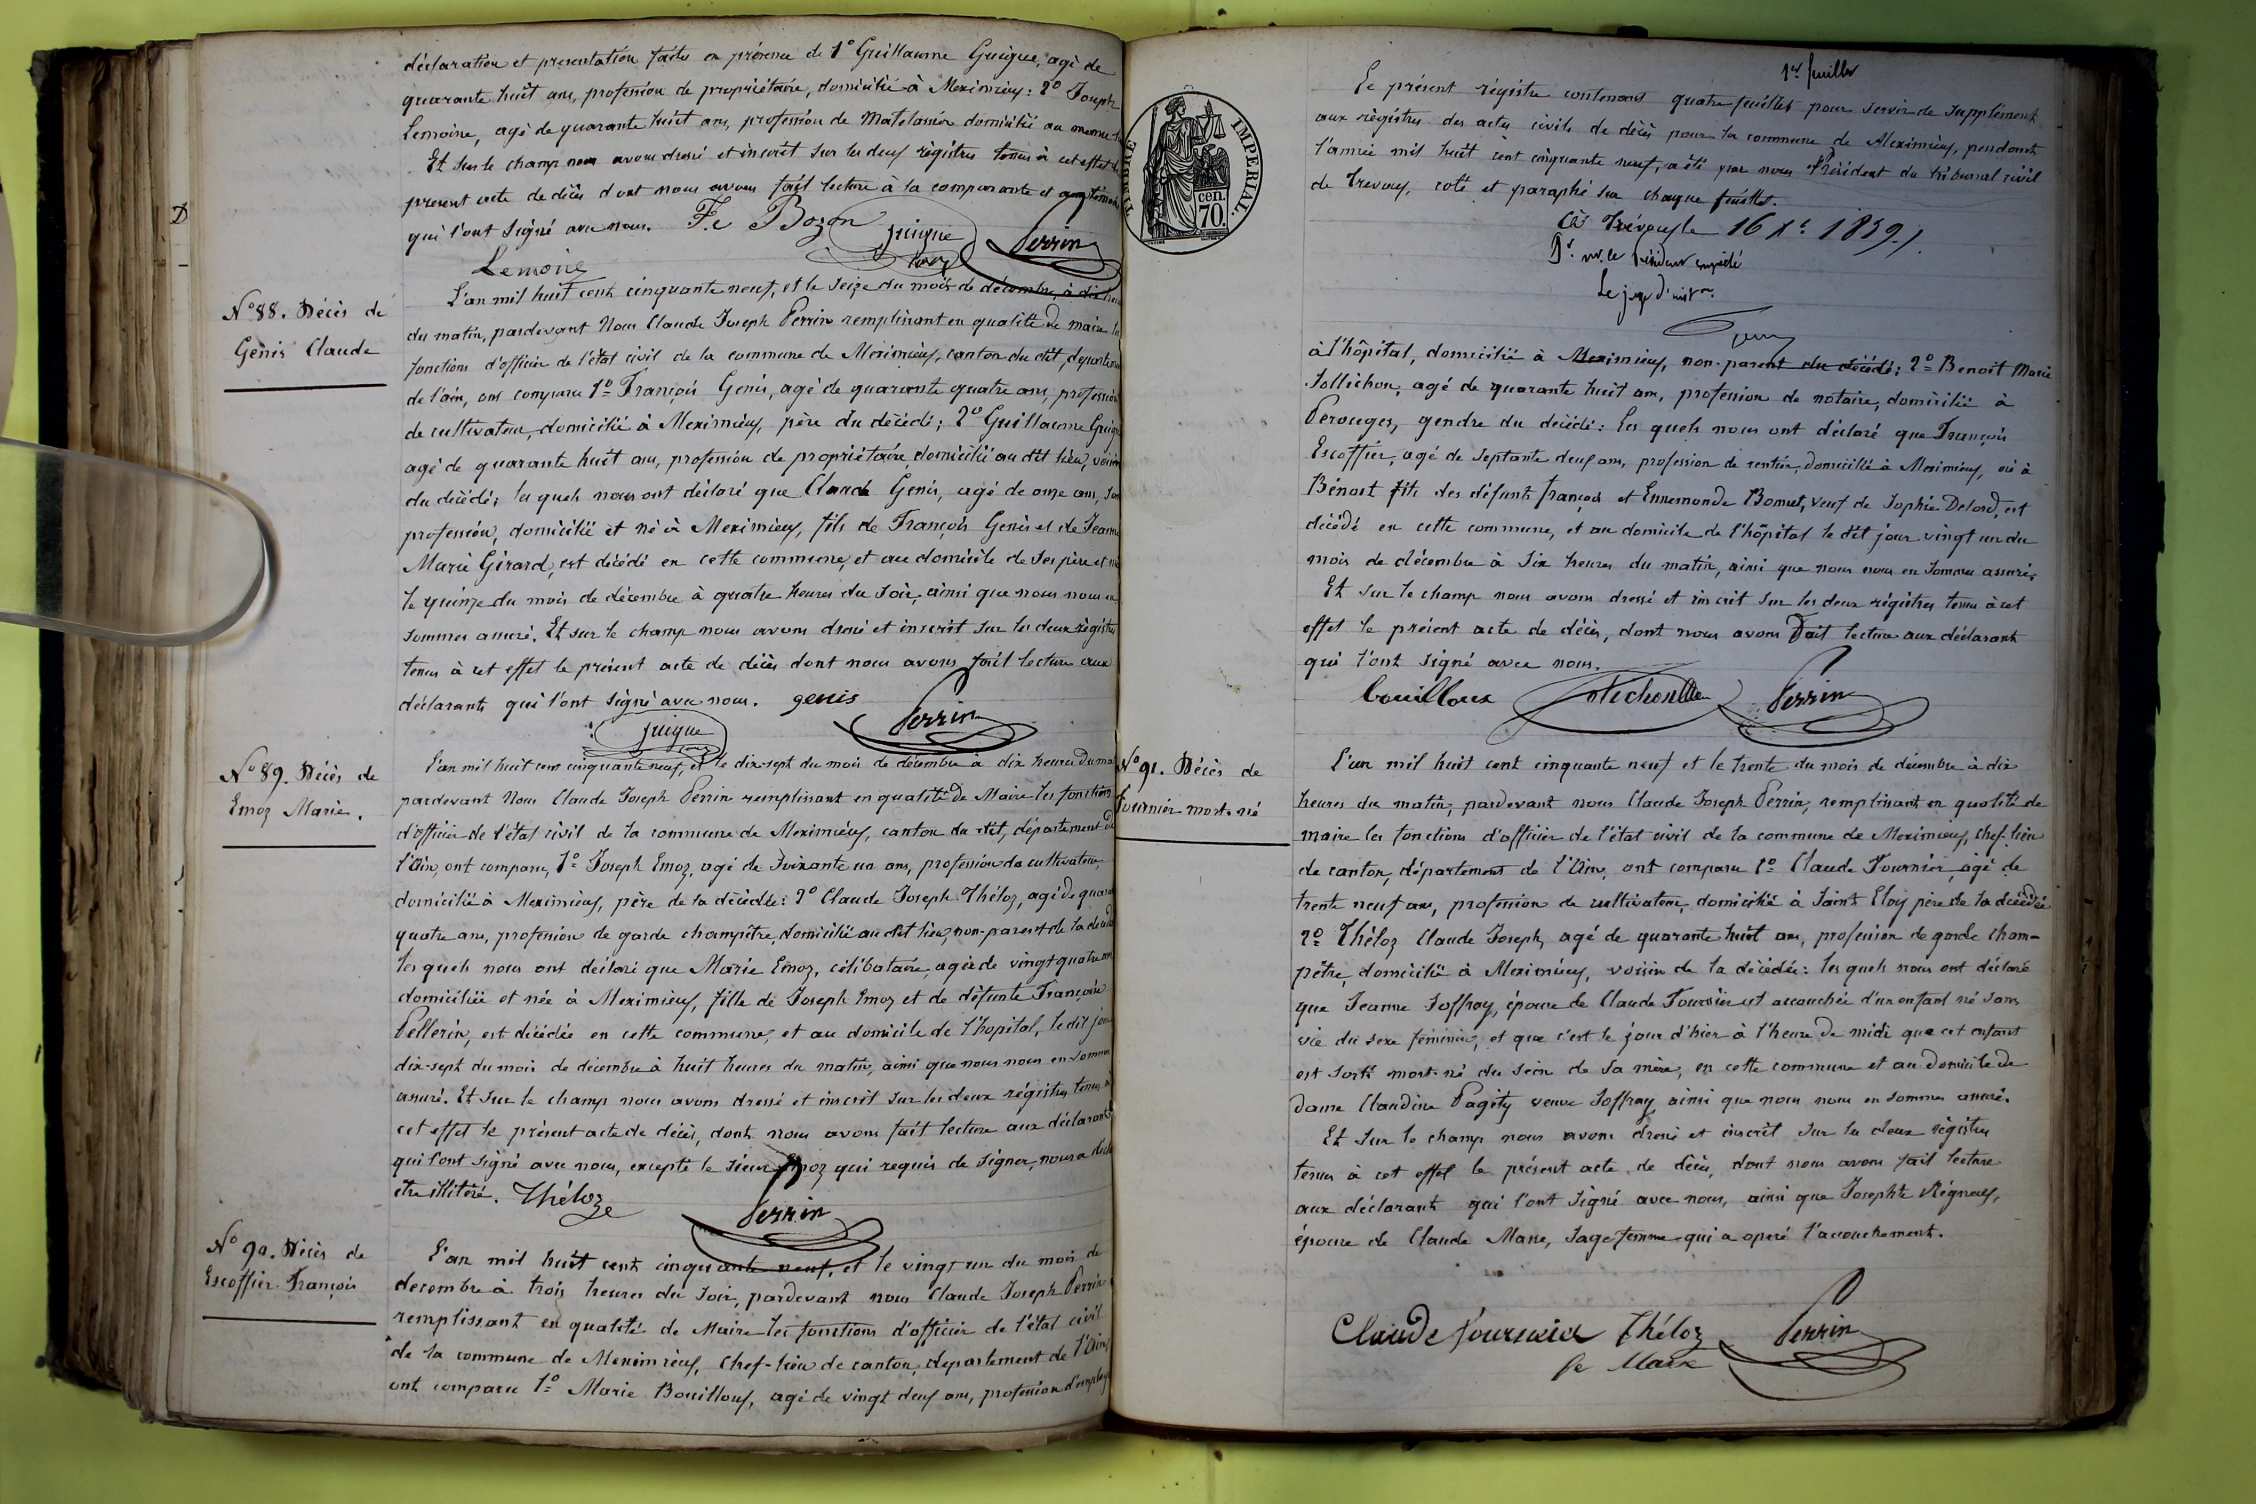 déclaration et presentation faites en présence de 1° Guillaume Guigue, agé de
quarante huit ans, profession de propriétaire, domicilié à Meximieux: 2° Joseph
Lemoine, agé de quarante huit ans, profession de Matelassier domicilié au meme
Et sur le champ nous avons dressé et inscrit sur les deux régistres tenus à cet effet le
present acte de décès dont nous avons fait lecture à la comparante et aux témoins
qui l'ont signé avec nous. Fe Bozon Guigue Perrin
Lemoine
N° 88. Décès de
Genis Claude
L'an mil huit cent cinquante neuf, et le seize du mois de décembre, à dix heures
du matin, pardevant Nous Claude Joseph Perrin remplissant en qualité de maire les
fonctions d'officier de l'état civil de la commune de Meximieux, canton du dit, département
de l'ain, ont comparu 1° François Genis, agé de quarante quatre ans, profession
de cultivateur, domicilié à Meximieux, père du décédé; 2° Guillaume Guigue
agé de quarante huit ans, profession de propriétaire, domicilié au dit lieu, voisin
du décédé; les quels nous ont déclaré que Claude Genis, agé de onze ans, sans
profession, domicilié et né à Meximieux, fils de François Genis et de Jeanne
Marie Girard, est décédé en cette commune, et au domicile de ses père et mère
le quinze du mois de décembre à quatre heures du soir, ainsi que nous nous en
sommes assuré. Et sur le champ nous avons dressé et inscrit sur les deux régistres
tenus à cet effet le présent acte de décès dont nous avons fait lecture aux
déclarants qui l'ont signé avec nous. genis Perrin
Guigue
N° 89. Décès de
Emoz Marie.
L'an mil huit cent cinquante neuf, et le dix-sept du mois de décembre à dix heures du matin
pardevant Nous Claude Joseph Perrin remplissant en qualité de Maire les fonctions
d'officier de l'état civil de la commune de Meximieux, canton du dit, département de
l'Ain, ont comparu, 1° Joseph Emoz, agé de soixante un ans, profession de cultivateur,
domicilié à Meximieux, père de la décédée: 2° Claude Joseph Théloz, agé de quarante
quatre ans, profession de garde champêtre, domicilié au dit lieu, non-parent de la décédée
les quels nous ont déclaré que Marie Emoz, célibataire, agée de vingt quatre ans
domiciliée et née à Meximieux, fille de Joseph Emoz et de défunte Françoise
Pellerin, est décédée en cette commune, et au domicile de l'hopital, le dit jour
dix-sept du mois de décembre à huit heures du matin, ainsi que nous nous en sommes
assuré. Et sur le champ nous avons dressé et inscrit sur les deux régistres tenus à
cet effet le présent acte de décès, dont nous avons fait lecture aux déclarants
qui l'ont signé avec nous, excepté le sieur Emoz qui requis de signer, nous a déclaré
etre illitéré. Théloz Perrin
N° 90. Décès de
Escoffier François
L'an mil huit cent cinquante neuf, et le vingt un du mois de
decembre à trois heures du soir, pardevant nous Claude Joseph Perrin
remplissant en qualité de Maire les fonctions d'officier de l'état civil
de la commune de Meximieux, chef-lieu de canton, département de l'Ain,
ont comparu 1° Marie Bouilloux, agé de vingt deux ans, profession d'employé
TIMBRE IMPERIAL.
cen.
70.
1er feuillet
Le présent régistre contenant quatre feuillets pour servir de supplément
aux régistres des actes civils de décès pour la commune de Meximieux, pendant
l'année mil huit cent cinquante neuf, a été par nous Président du tribunal civil
de Trevoux, coté et paraphé sur chaque feuillet.
à Trévoux le 16 Xe 1859.
Pr mr. le Président empêché
Le juge d'inston.
à l'hôpital, domicilié à Meximieux, non-parent du décédé; 2° Benoit Marie
Jollichon, agé de quarante huit ans, profession de notaire, domicilié à
Perouges, gendre du décédé: les quels nous ont déclaré que François
Escoffier, agé de septante deux ans, profession de rentier, domicilié à Meximieux, né à
Bénost fils des défunts François et Ennemonde Bomet, veuf de Sophie Delord, est
décédé en cette commune, et au domicile de l'hôpital le dit jour vingt un du
mois de décembre à six heures du matin, ainsi que nous nous en sommes assuré.
Et sur le champ nous avons dressé et inscrit sur les deux régistres tenus à cet
effet le présent acte de décès, dont nous avons fait lecture aux déclarants
qui l'ont signé avec nous.
bouilloux Perrin
N° 91. Décès de
Fournier mort-né
L'an mil huit cent cinquante neuf et le trente du mois de décembre à dix
heures du matin, pardevant nous Claude Joseph Perrin, remplissant en qualité de
maire les fonctions d'officier de l'état civil de la commune de Meximieux, chef-lieu
de canton, département de l'Ain, ont comparu 1° Claude Fournier, agé de
trente neuf ans, profession de cultivateur, domicilié à Saint Eloy père de la décédée
2° Théloz Claude Joseph, agé de quarante huit ans, profession de garde cham-
pêtre, domicilié à Meximieux, voisin de la décédée: les quels nous ont déclaré
que Jeanne Joffray, épouse de Claude Fournier est accouchée d'un enfant né sans
vie du sexe féminin, et que c'est le jour d'hier à l'heure de midi que cet enfant
est sorti mort-né du sein de sa mère, en cette commune et au domicile de
dame Claudine Pagéty veuve Joffray, ainsi que nous nous en sommes assuré.
Et sur le champ nous avons dressé et inscrit sur les deux régistres
tenus à cet effet le présent acte de décès, dont nous avons fait lecture
aux déclarants qui l'ont signé avec nous, ainsi que Josephte Régneux,
épouse de Claude Marre, sage femme qui a opéré l'accouchement.
Claude fournier Théloz Perrin
fe Marre